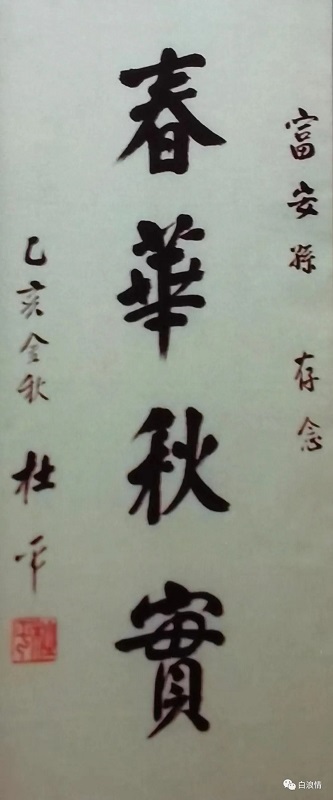 富安孫 存念
春華秋實
己亥金秋 杜平
白浪情